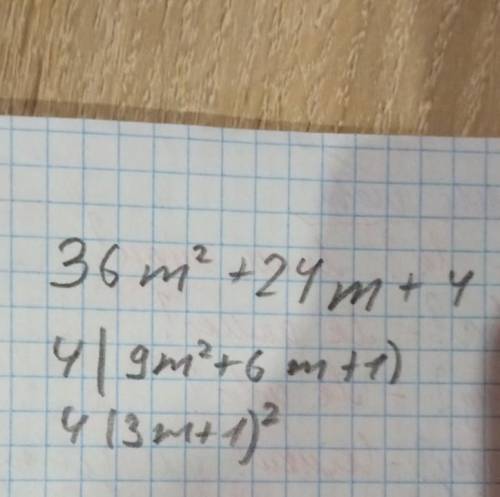 36m² + 24m + 4
4(9m² + 6m + 1)
4(3m+1)²